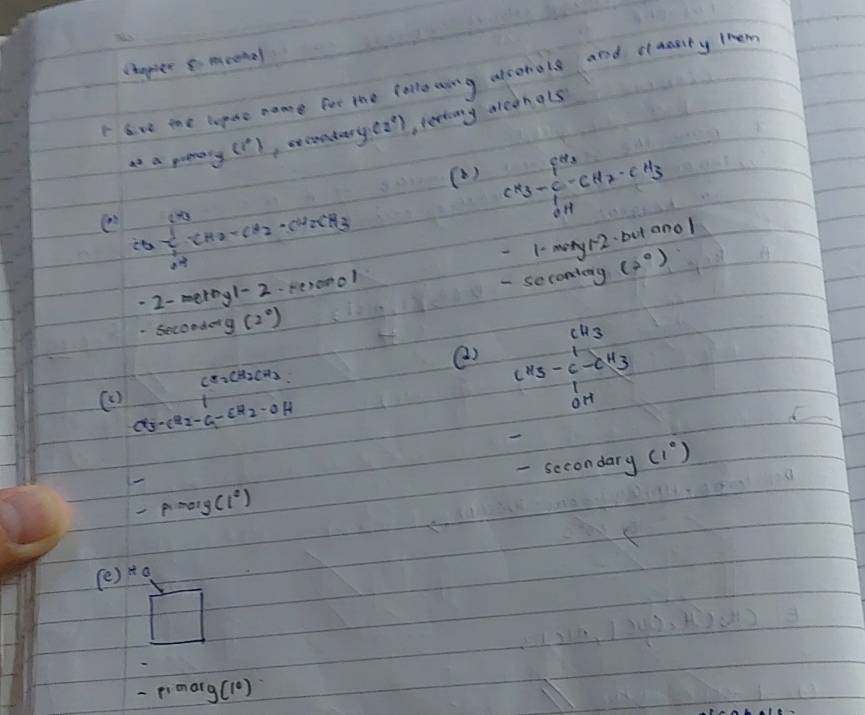 Chapter 8: Alcohol
1. Give the iupac name for the following alcohols and classify them
as a primary (1°), secondary (2°), tertiary alcohols
(a)
CH3
CH3 - C - CH2 - CH2 - CH2CH3
OH
- 2-methyl-2-hexanol
- secondary (2°)
(b)
CH3
CH3 - C - CH2 - CH3
OH
- 1-methyl-2-butanol
- secondary (2°)
(c)
CH2CH2CH3
CH3-CH2-C-CH2-OH
-
- primary (1°)
(d)
CH3
CH3 - C - CH3
OH
-
- secondary (1°)
(e) HO
-
- primary (1°)